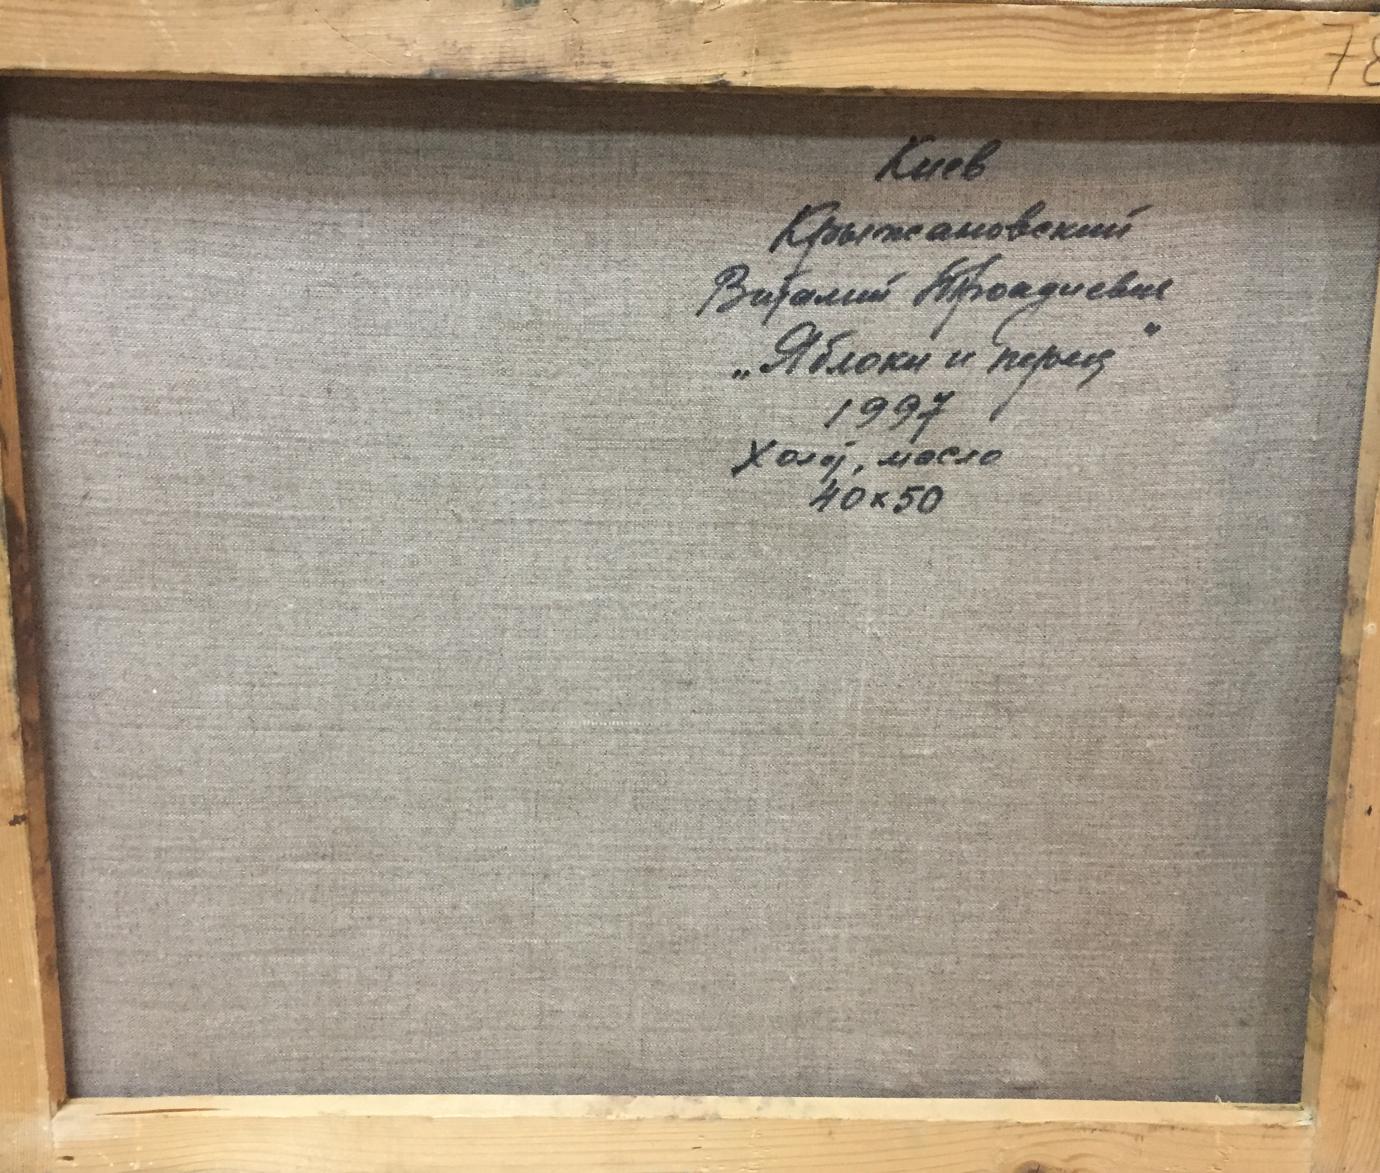 78
Киев
Крыжановский
Виталий
„Яблоки и перец"
1997
Холст, масло
40x50